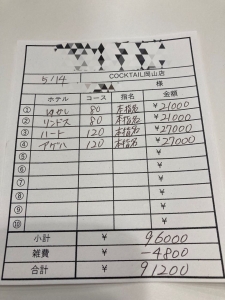 5/14 COCKTAIL岡山店
様
ホテル コース 指名 金額
① ゆめじ 80 本指名 ¥21000
② リンドス 80 本指名 ¥21000
③ ハート 120 本指名 ¥27000
④ アゲハ 120 本指名 ¥27000
⑤ ¥
⑥ ¥
⑦ ¥
⑧ ¥
⑨ ¥
⑩ ¥
小計 ¥ 96000
雑費 ¥ -4800
合計 ¥ 91200